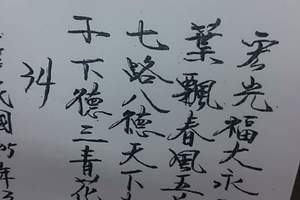 雲光福大永
葉飄春風五
七路八德天下
子下德三青花
34
民國95年3